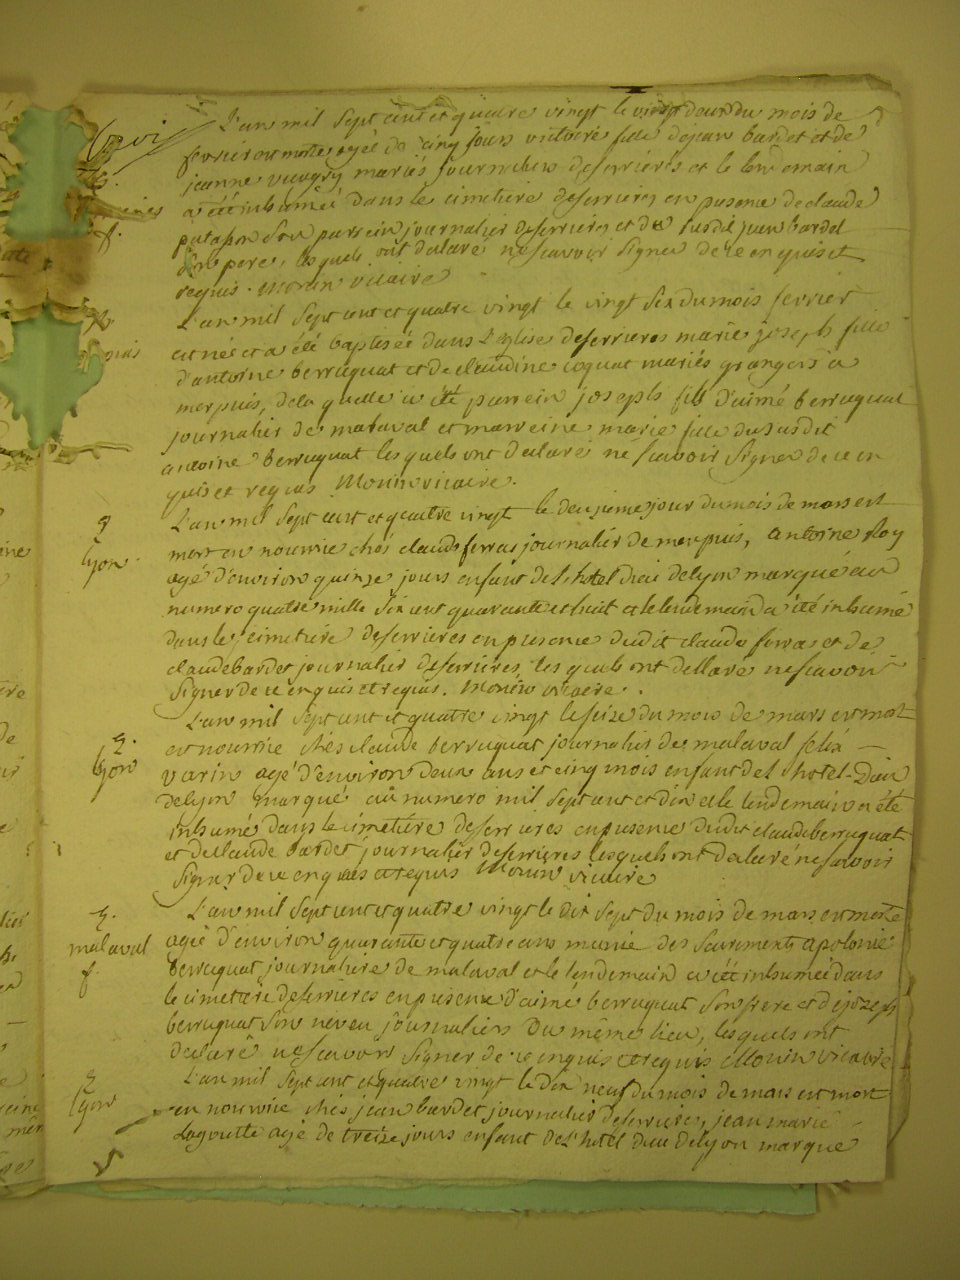 L'an mil sept cent et quatre vingt le vingt deux du mois de
fevrier est morte agée de cinq jours victoire fille de jean bardet et de
jeanne mariés journaliers deferrieres et le lendemain
a été inhumée dans le cimetiere deferrieres en presence de claude
son parrein journalier deferrieres et de susdit jean bardet
son pere, lesquels ont declaré ne scavoir signer de ce enquis et
requis. Monin vicaire
L'an mil sept cent et quatre vingt le vingt six du mois fevrier
est née et a été baptisée dans l'eglise deferrieres marie joseph fille
d'antoine berruquat et de claudine coquat mariés grangers a
merpuis, de la quelle a été parrein joseph fils d'aimé berruquat
journalier de malaval et marreine marie fille du susdit
antoine berruquat lesquels ont declaré ne scavoir signer de ce en
quis et requis Monin vicaire.
L'an mil sept cent et quatre vingt le deuxieme jour du mois de mars est
mort en nourrice chés claude ferras journalier de merpuis, antoine Roy
agé d'environ quinze jours enfant de l'hotel dieu de lyon marqué au
numero quatre mille six cent quarante et huit et le lendemain a été inhumé
dans le cimetiere deferrieres en presence dudit claude ferras et de
claude bardet journalier deferrieres, lesquels ont dellaré ne scavoir
signer de ce enquis et requis. Monin vicaire.
lyon
L'an mil sept cent et quatre vingt le seize du mois de mars est mort
en nourrice chés claude berruquat journalier de malaval felix
varin agé d'environ deux ans et cinq mois enfant de l'hotel-Dieu
de lyon marqué au numero mil sept cent et dix et le lendemain a été
inhumé dans le cimetiere deferrieres en presence dudit claude berruquat
et de claude bardet journalier deferrieres lesquels ont declaré ne scavoir
signer de ce enquis et requis Monin vicaire
lyon
L'an mil sept cent et quatre vingt le dix sept du mois de mars est morte
agée d'environ quarante et quatre ans munie des sacrements apolonie
berruquat journaliere de malaval et le lendemain a été inhumée dans
le cimetiere deferrieres en presence d'aimé berruquat son frere et de joseph
berruquat son neveu journaliers du même lieu, lesquels ont
declaré ne scavoir signer de ce enquis et requis Monin vicaire
malaval
f.
L'an mil sept cent et quatre vingt le dix neuf du mois de mars est mort
en nourrice chés jean bardet journalier deferrieres, jean marie
Lagoutte agé de treize jours enfant de l'hotel dieu de lyon marque
lyon